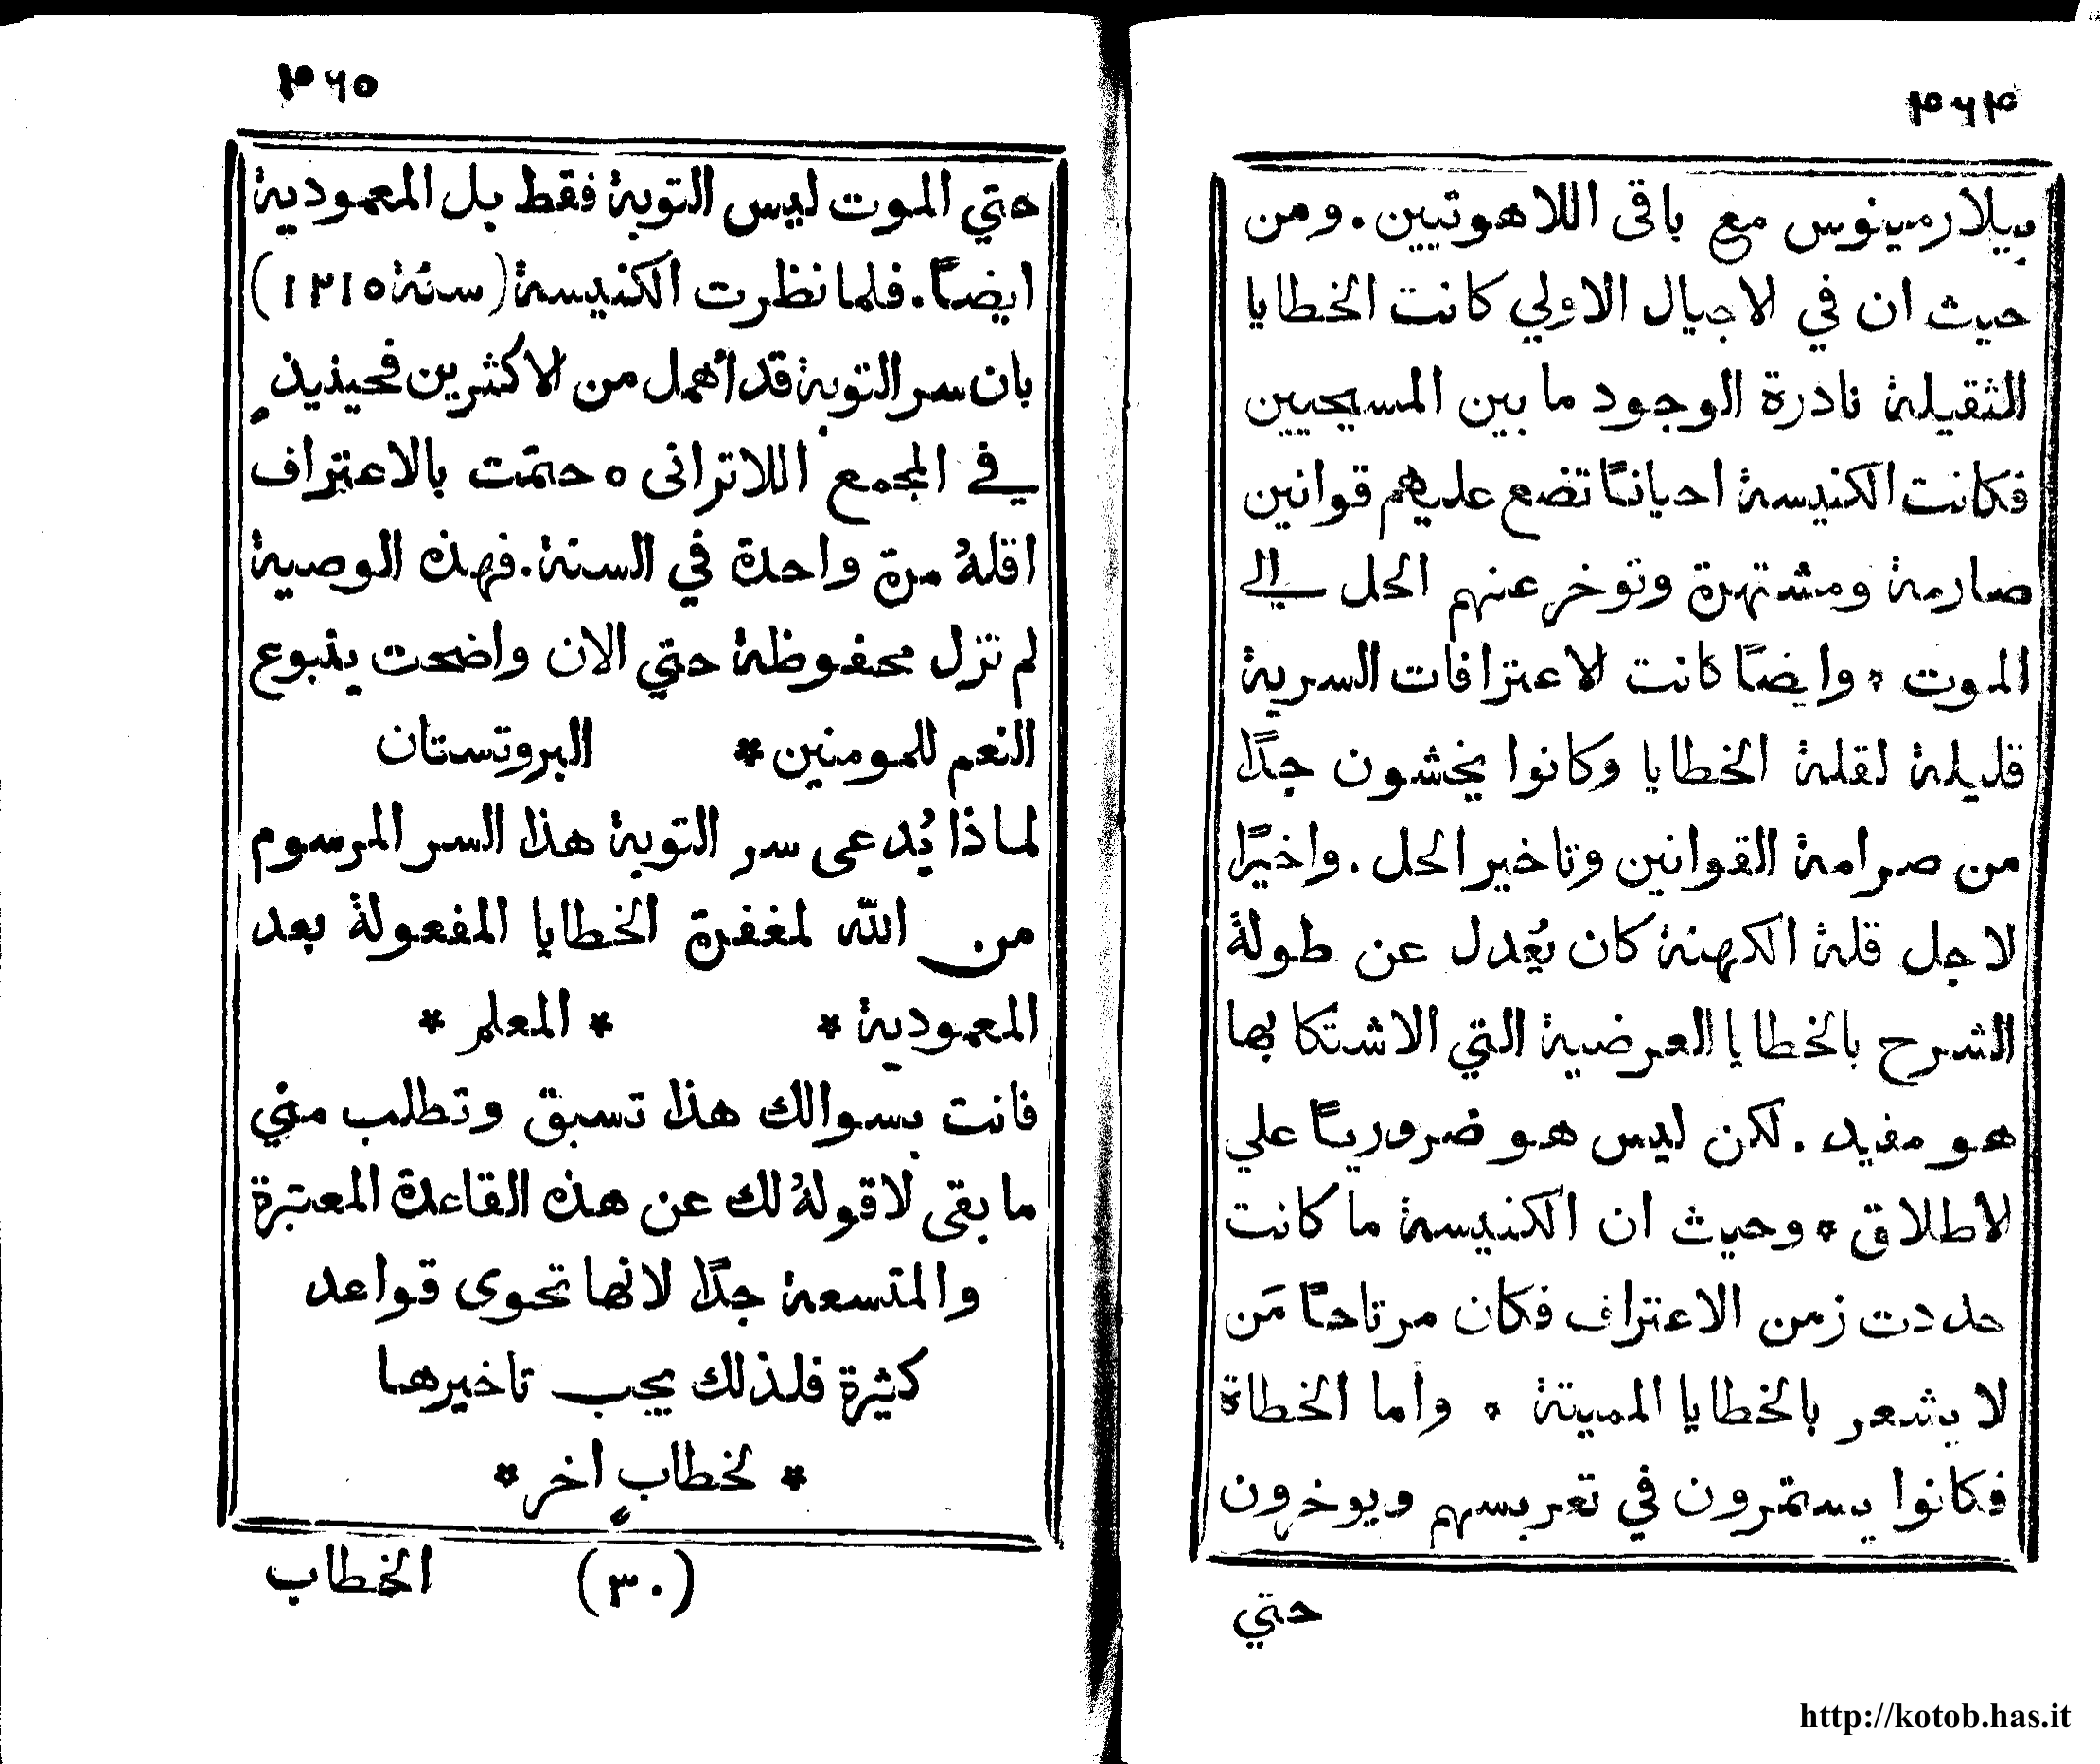 ٣٦٤
بيلارمينوس مع باقى اللاهوتيين. ومن
حيث ان في الاجيال الاولي كانت الخطايا
الثقيلة نادرة الوجود ما بين المسيحيين
فكانت الكنيسة احياناً تضع عليهم قوانين
صارمة ومشتهرة وتوخر عنهم الحل الي
الموت * وايضاً كانت الاعترافات السرية
قليلة لقلة الخطايا وكانوا يخشون جدّاً
من صرامة القوانين وتاخير الحل. واخيرًا
لاجل قلة الكهنة كان يُعدل عن طولة
الشرح بالخطايا العرضية التي الاشتكا بها
هو مفيد. لكن ليس هو ضرورياً علي
الاطلاق * وحيث ان الكنيسة ما كانت
حددت زمن الاعتراف فكان مرتاحاً مَن
لا يشعر بالخطايا المميتة * واما الخطاة
فكانوا يستمرون في تعريسهم ويوخرون
حتي
٣٦٥
حتي الموت ليس التوبة فقط بل المعمودية
ايضاً. فلما نظرت الكنيسة (سنة ١٢١٥)
بان سر التوبة قد أهمل من الاكثرين فحينيذٍ
في المجمع اللاتراني * حتمت بالاعتراف
اقلهُ مرة واحدة في السنة. فهذه الوصية
لم تزل محفوظة حتي الان واضحت ينبوع
النعم للمومنين * البروتستان
لماذا يُدعى سر التوبة هذا السر المرسوم
من الله لمغفرة الخطايا المفعولة بعد
المعمودية * * المعلم *
فانت بسوالك هذا تسبق وتطلب مني
ما بقى لاقولهُ لك عن هذه القاعدة المعتبرة
والمتسعة جدّاً لانها تحوى قواعد
كثيرة فلذلك يجب تاخيرها
* لخطابٍ اخر *
(٣٠) الخطاب
http://kotob.has.it